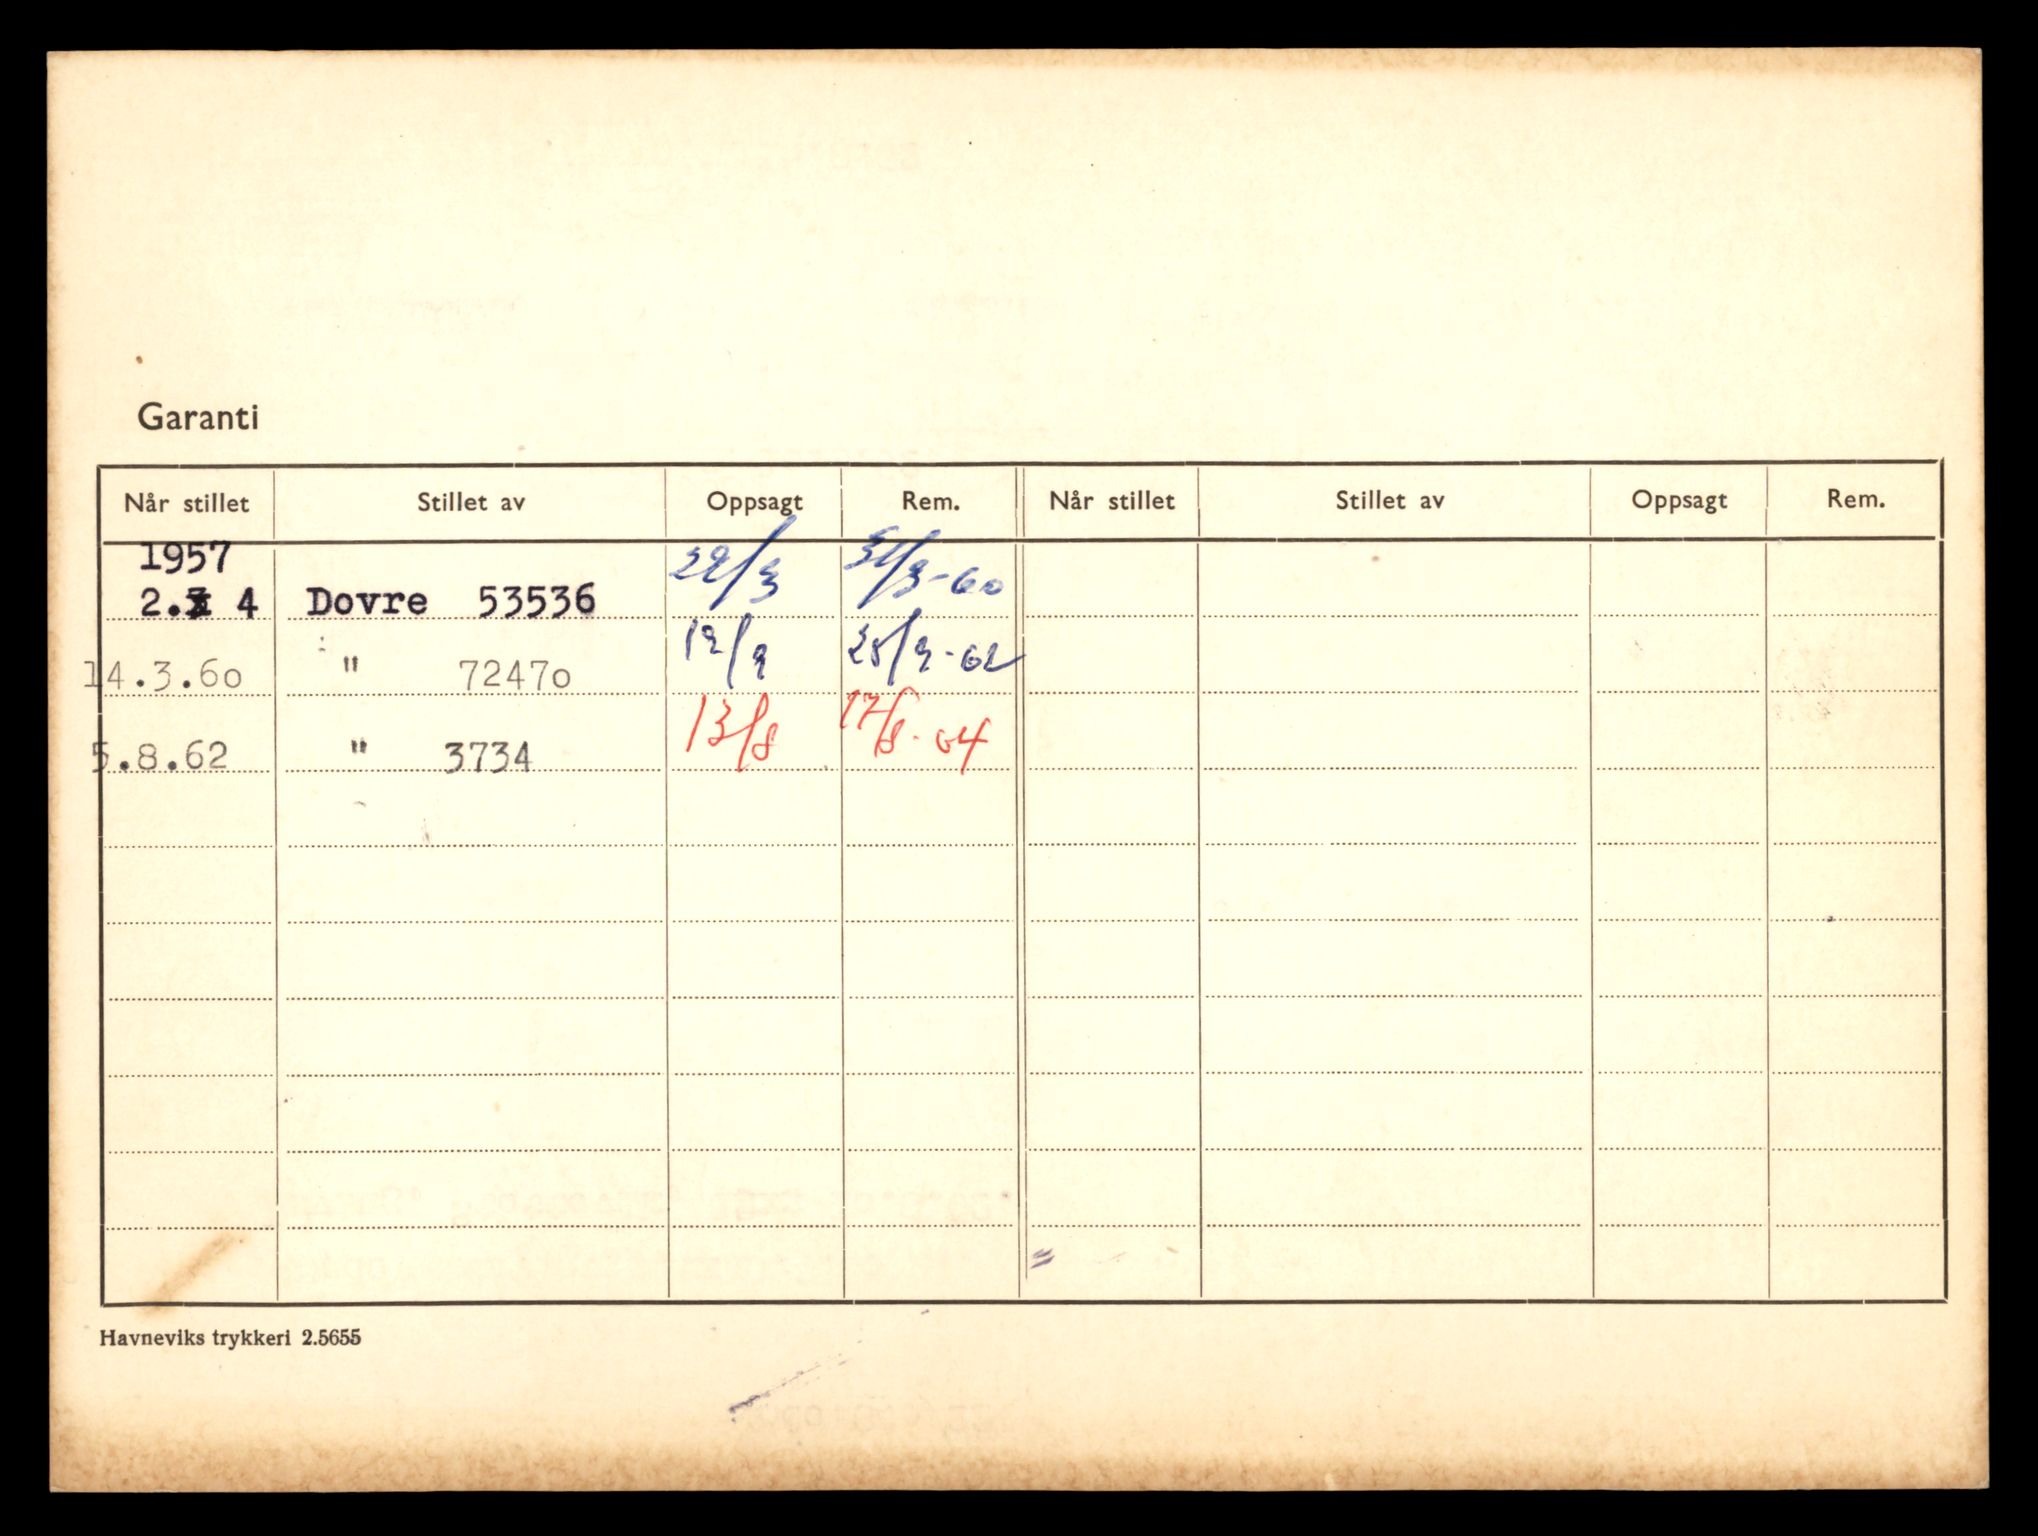 Garanti
Når stillet Stillet av Oppsagt Rem. Når stillet Stillet av Oppsagt Rem.
1957
2. 4 Dovre 53536 22/3 31/3-60
14.3.60 " 72470 12/9 25/9-62
5.8.62 " 3734 13/8 17/8-64
Havneviks trykkeri 2.5655